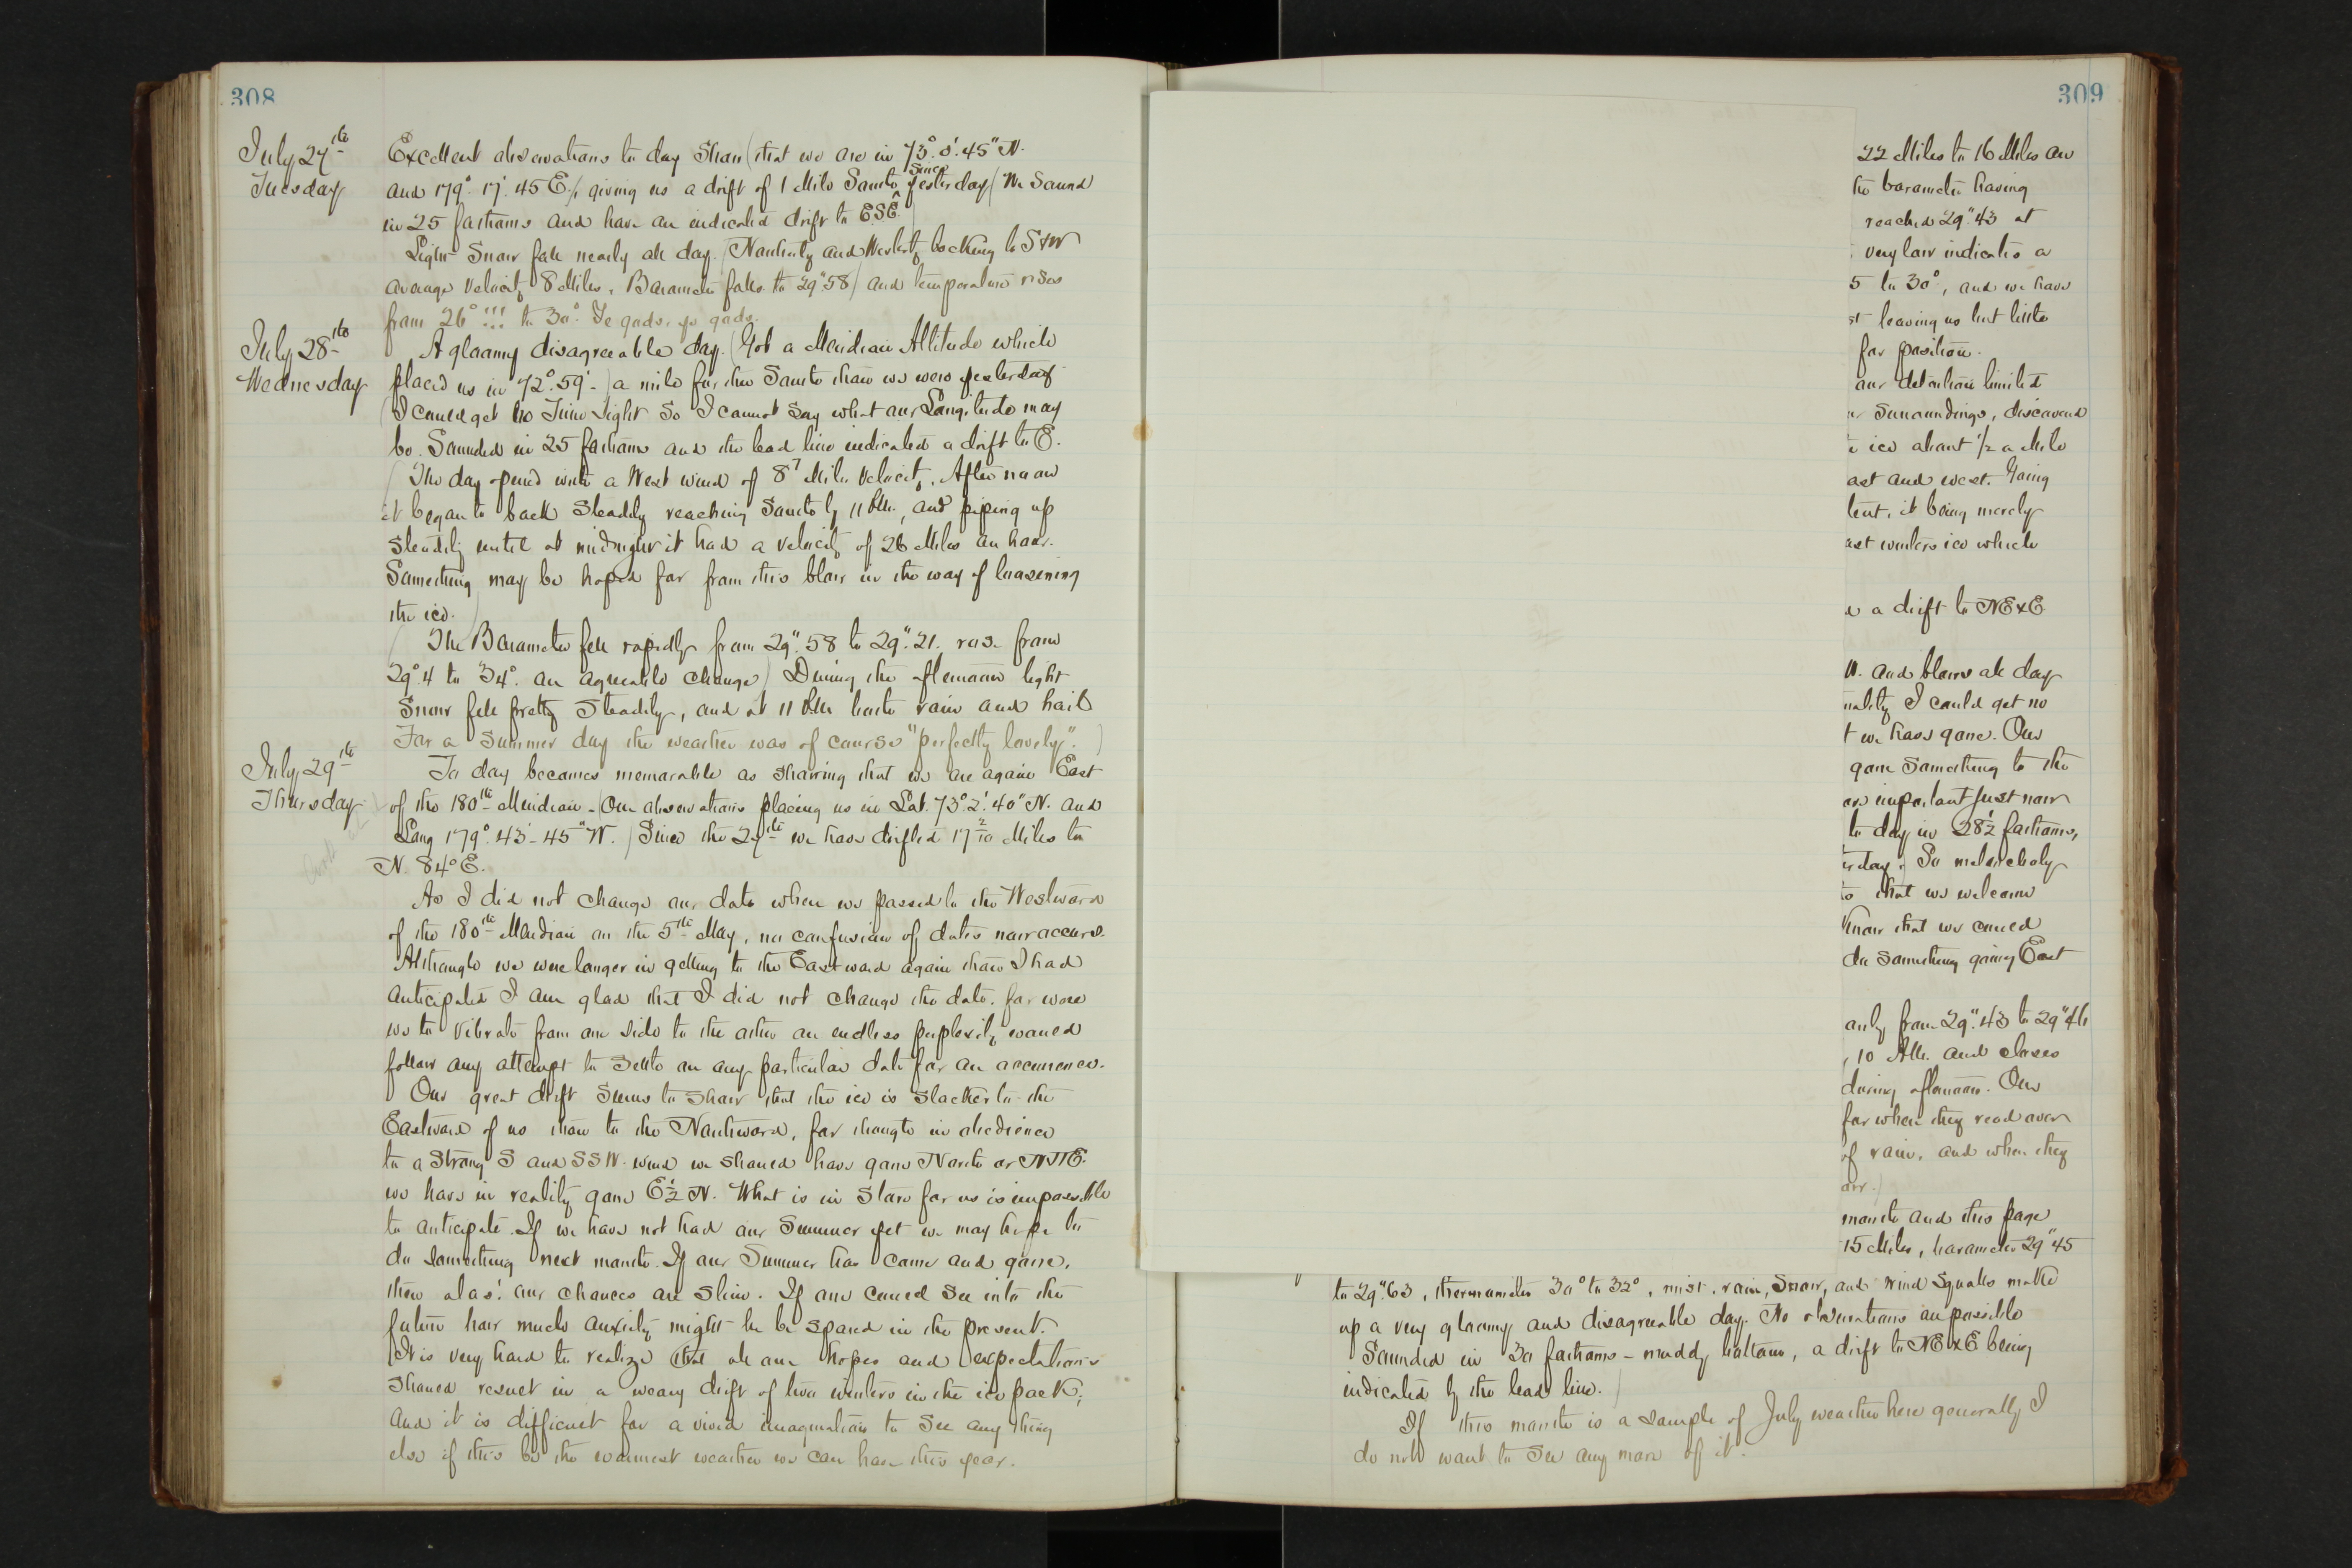 308
July 27th
Tuesday
Excellent observations to day show (that we are in 73°.0'.45" N.
and 179°.17'.45 E., giving us a drift of 1 Mile South since yesterday) (We Sound
in 25 fathoms and have an indicated drift to ESE.)
Light Snow fell nearly all day. (Northerly and Westerly backing to SxW
average velocity 8 Miles. Barometer falls to 29".58) and temperature rises
from 26°!!! to 30°. Ye gods, ye gods.
July 28th
Wednesday
A gloomy disagreeable day. (Got a Meridian Altitude which
placed us in 72°.59'-) a mile further South than we were yesterday
(I could get no Time Sight So I cannot Say what our Longitude may
be. Sounded in 25 fathoms and the lead line indicated a drift to E.
(The day opened with a West wind of 8 7 Mile velocity. After noon
it began to back Steadily reaching South by 11 P.M., and piping up
steadily until at midnight it had a velocity of 26 Miles an hour.
Something may be hoped for from this blow in the way of loosening
the ice.)
(The Barometer fell rapidly from 29".58 to 29".21. rose from
29°.4 to 34°. an agreeable change) During the afternoon light
Snow fell pretty Steadily, and at 11 P.M. both rain and hail
For a Summer day the weather was of course "perfectly lovely".)
July 29th
Thursday
To day becomes memorable as showing that we are again East
of the 180th Meridian - (Our observations placing us in Lat. 73°.2'.40" N. and
Long 179°.43'-45" W.) Since the 27th we have drifted 17 2/10 Miles to
N. 84° E.
As I did not change our date when we passed to the Westward
of the 180th Meridian on the 5th May, no confusion of dates now occurs.
Although we were longer in getting to the Eastward again than I had
anticipated I am glad that I did not change the date. for were
we to vibrate from one side to the other an endless perplexity would
follow any attempt to settle on any particular date for an occurrence.
Our great drift Seems to show that the ice is slacker to the
Eastward of us than to the Northward, for though in obedience
to a Strong S and SSW. wind we should have gone North or NNE.
we have in reality gone E 1/2 N. What is in Store for us is impossible
to anticipate. If we have not had our Summer yet we may hope to
do something next month. If our Summer has come and gone,
then alas! our chances are slim. If one could See into the
future how much anxiety might be spared in the present.
It is very hard to realize that all our hopes and expectations
should result in a weary drift of two winters in the ice pack;
and it is difficult for a vivid imagination to See any thing
else if this be the warmest weather we can have this year.
309
22 Miles to 16 Miles an
he barometer having
reached 29".43 at
very low indicates a
5 to 30°, and we have
st leaving us but little
for position.
our detention limited
ur surroundings, discovered
e ice about 1/2 a Mile
ast and west. Going
tent, it being merely
ast winters ice which
d a drift to NExE
W. and blows all day
nality I could get no
t we have gone. Our
gone Something to the
are important just now
to day in 28 1/2 fathoms,
terday.) So melancholy
to that we welcome
know that we could
do Something going East
only from 29".43 to 29"46
, 10 A.M. and closes
during afternoon. Our
for when they read over
of rain, and when they
our.)
month and this page
15 Miles, barometer 29"45
to 29".63, thermometer 30° to 32°, mist, rain, Snow, and wind Squalls make
up a very gloomy and disagreeable day. No observations are possible
Sounded in 30 fathoms - muddy bottom, a drift to NExE being
indicated by the lead line.)
If this month is a sample of July weather here generally I
do not want to See any more of it.